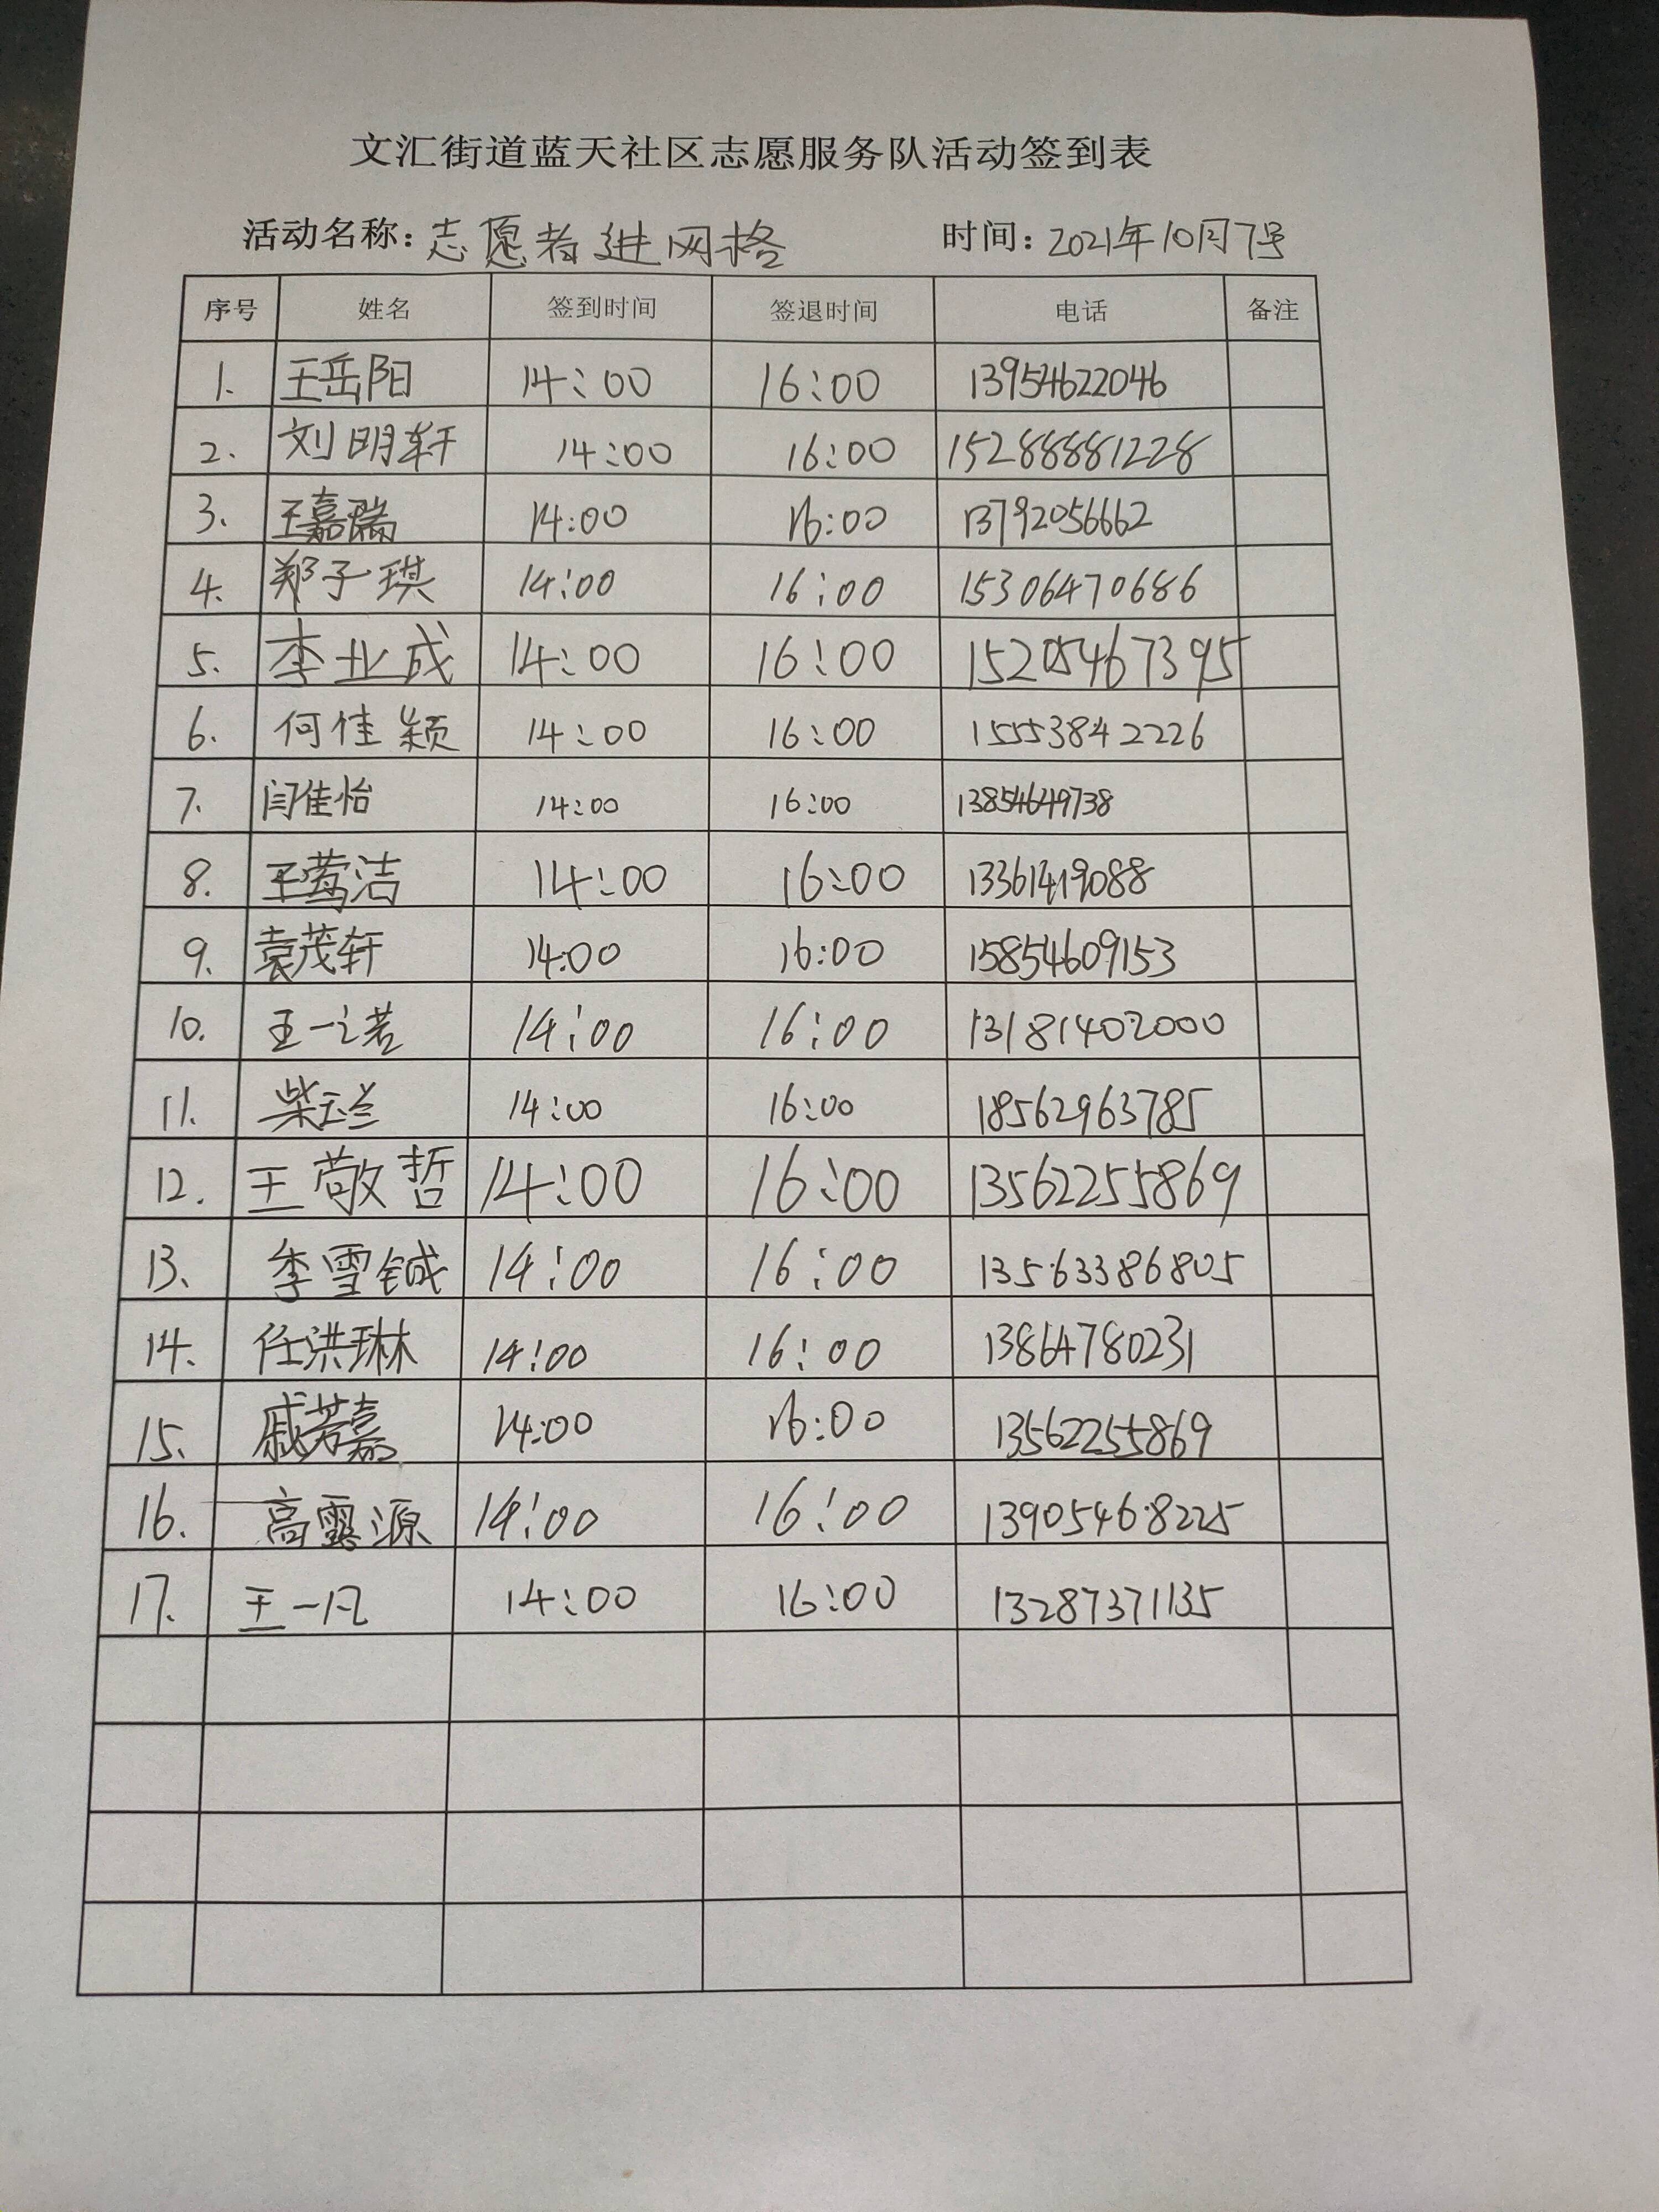 文汇街道蓝天社区志愿服务队活动签到表
活动名称：志愿者进网格 时间：2021年10月7号
序号 姓名 签到时间 签退时间 电话 备注
1. 王岳阳 14:00 16:00 13954622046
2. 刘明轩 14:00 16:00 15288881228
3. 王嘉瑞 14:00 16:00 13792056662
4. 郑子琪 14:00 16:00 15306470686
5. 李业成 14:00 16:00 15205467395
6. 何佳颖 14:00 16:00 15553842226
7. 闫佳怡 14:00 16:00 13854649738
8. 王莺洁 14:00 16:00 13361419088
9. 袁茂轩 14:00 16:00 15854609153
10. 王一诺 14:00 16:00 13181402000
11. 柴玉兰 14:00 16:00 18562963785
12. 王敬哲 14:00 16:00 13562255869
13. 李雪铖 14:00 16:00 13563386805
14. 任洪琳 14:00 16:00 13864780231
15. 戚芳嘉 14:00 16:00 13562255869
16. 高露源 14:00 16:00 13905468225
17. 王一凡 14:00 16:00 13287371135